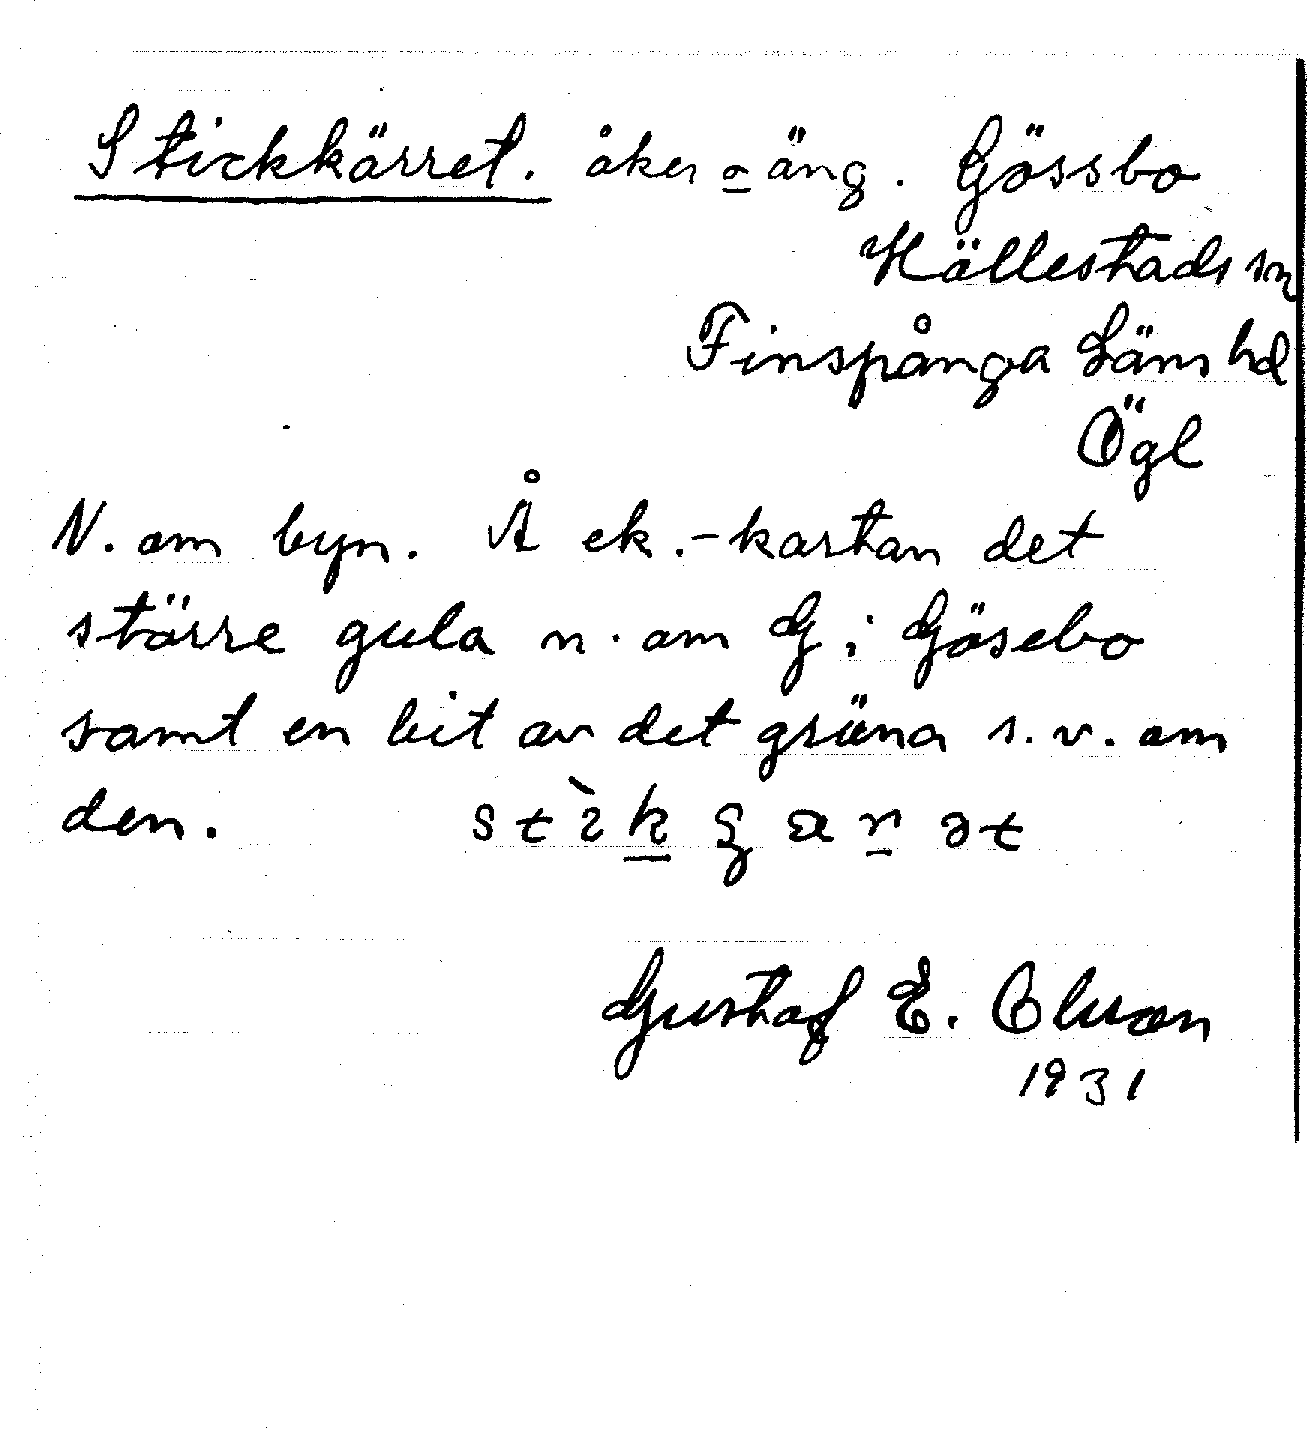 Stickkärret. åker o äng. Gössbo
Hällestads sn
Finspånga Läns hd
Ögl
N. om byn. Å ek.-kartan det
större gula n. om G i Gösebo
samt en bit av det gröna s.v. om
den.
Gustaf E. Olsson
1931